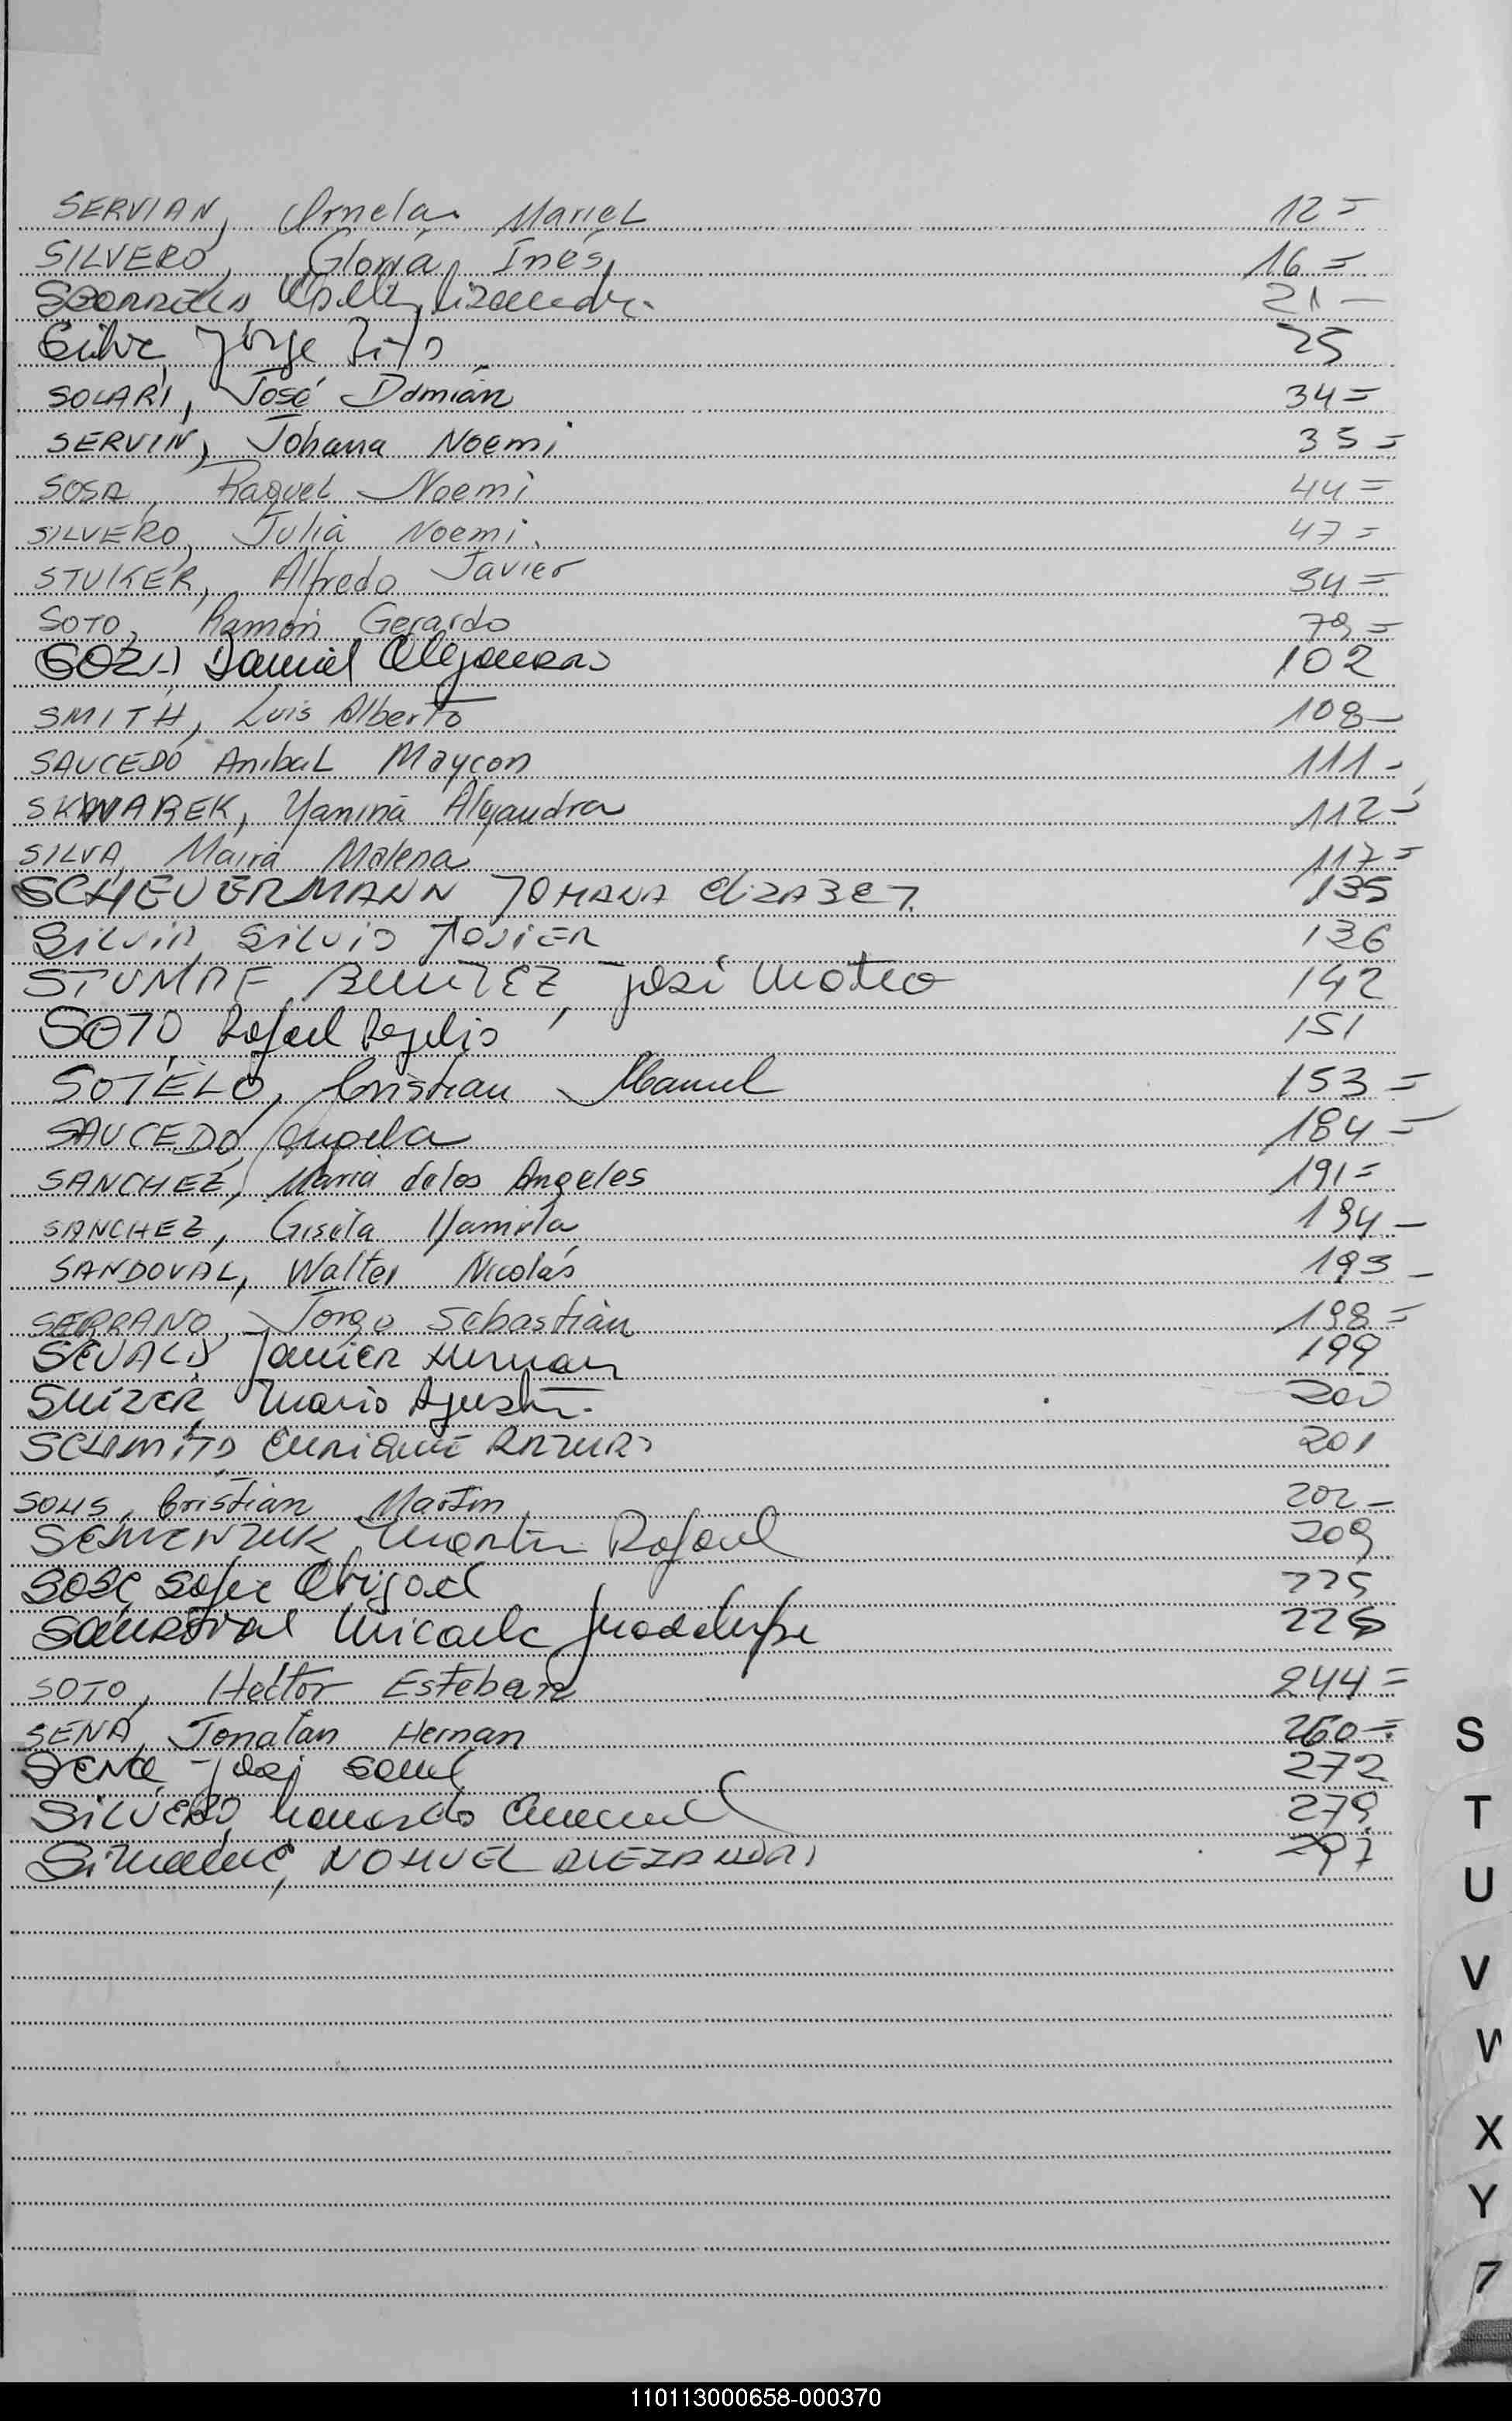 SERVIAN, Ornela Mariel 12=
SILVERO, Gloria Inés 16=
21-
Silva, Jorge Tito 25
SOLARI, José Damián 34=
SERVIN, Johana Noemi 35=
SOSA, Raquel Noemi 44=
SILVERO, Julia Noemi. 47=
STUIKER, Alfredo Javier 54=
SOTO, Ramón Gerardo 79=
SOZA Daniel Alejandro 102
SMITH, Luis Alberto 108-
SAUCEDO Anibal Maycon 111-
SKWAREK, Yanina Alejandra 112-
SILVA, Maira Malena 117=
SCHEUERMANN JOHANA ElIZABET. 135
Silvia, Silvio Javier 136
STUMPF BENITEZ, José Mateo 142
SOTO Rafael Rogelio 151
SOTELO, Cristian Manuel 153=
SAUCEDO, Angela 184=
SANCHEZ, Maria delos Angeles 191=
SANCHEZ, Gisela Yamila 194-
SANDOVAL, Walter Nicolás 195-
SERRANO, Jorge Sebastián 198=
Javier Hernan 199
Mario Agustin. 200
Enrique Arturo 201
SOLIS, Cristian Martin 202-
SEMENZUK, Martin Rafael 209
SOSA, Sofia Abigael 225
Sandoval Micaela Guadalupe 226
SOTO, Hector Esteban 244=
SENA, Jonatan Hernan 260=
SENA José Saul 272
SILVERO, Leonardo Emanuel 279
NOHUEL ALEZANDRO 297
S
T
U
V
W
X
Y
Z
110113000658-000370